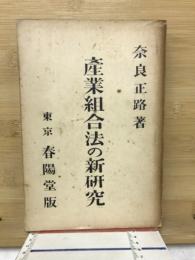 奈良正路著
產業組合法の新硏究
東京 春陽堂版